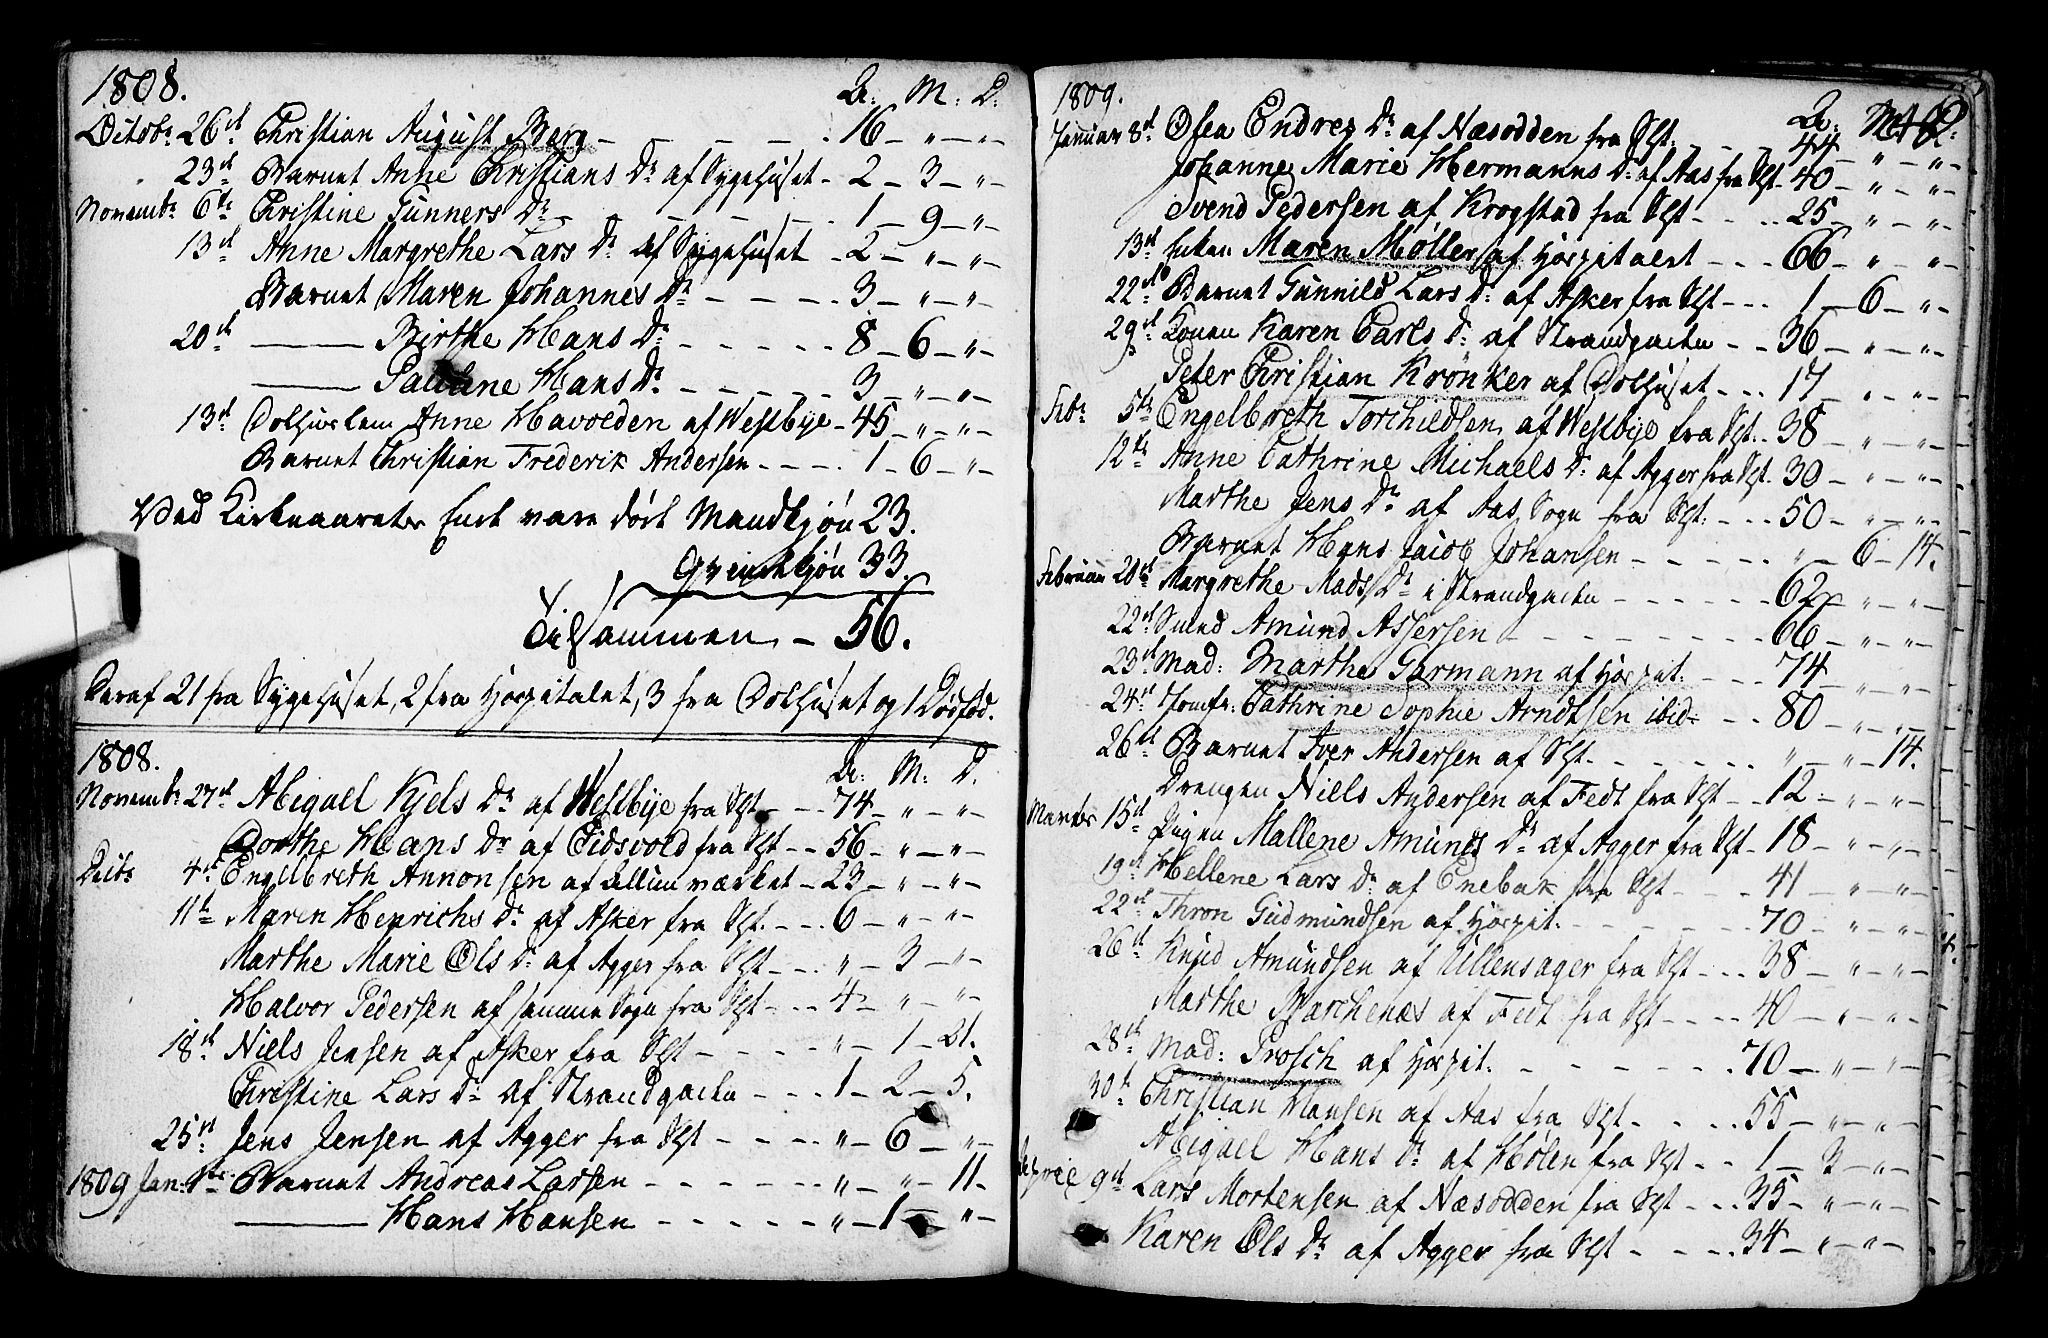 1808. A: M: D:
Octobr 26de Christian August Berg - - - - 16 - " - " -
23de Barnet Anne Christians Dr af Sygehuset - 2 - 3 - " -
Novembr 6te Christine Gunners Dr - - - - 1 - 9 - " -
13de Anne Margrethe Lars Dr af Sygehuset - 2 - " - " -
Barnet Maren Johannes Dr - - - - 3 - " - " -
20de ——— Birthe Hans Dr - - - - - 8 - 6 - " -
——— Pauline Hans Dr - - - - - 3 - " - " -
13de Dolhuslem Anne Havolden af Westbye - 45 - " - " -
Barnet Christian Frederik Andersen - - - - 1 - 6 - " -
Ved Kirkeaarets Ende vare død Mandkjøn 23.
Qvindekjøn 33.
Tilsammen - 56.
Deraf 21 fra Sygehuset, 2 fra Hospitalet, 3 fra Dolhuset og 1 Dødfød.
1808. A: M: D.
Novembr 27de Abigael Kjels Dr af Westbye fra Sgt - - 74 - " - " -
Dorthe Hans Dr af Eidsvold fra Sgt - - 56 - " - " -
Decbr 4de Engelbreth Annonsen af Allunværket - 23 - " - " -
11te Maren Henrichs Dr af Asker fra Sgt. - - - 6 - " - " -
Marthe Marie Ols Dr af Agger fra Sgt - - - " - 3 - " -
Halvor Pedersen af samme Sogn fra Sgt - - - 4 - " - " -
18de Niels Jensen af Asker fra Sgt - - - - " - 1 - 21.
Christine Lars Dr af Strandgaden - - - 1 - 2 - 5.
25de Jens Jensen af Agger fra Sgt - - - - " - 6 - " -
1809 Jan: 1te Barnet Andreas Larsen - - - - - - " - " - 11.
——— Hans Hansen - - - - - - " - 1 - " -
1809. A: M: D:
Januar 8de Osea Endres Dr af Næsodden fra Sgt. - - - 44 - " - " -
Johanne Marie Hermanns Dr af Aas fra Sgt - 40 - " - " -
Svend Pedersen af Krogstad fra Sgt - - - - 25 - " - " -
13de Enken Maren Møller af Hospitalet - - - 66 - " - " -
22de Barnet Gunnild Lars Dr af Asker fra Sgt - - - 1 - 6 - " -
29de Konen Karen Carls Dr af Strandgaden - - 36 - " - " -
Peter Christian Krönker af Dolhuset - - - 17 - " - " -
Febr 5te Engelbreth Torchildsen af Westbye fra Sgt. - 38 - " - " -
12te Anne Cathrine Michaels Dr af Agger fra Sgt. 30 - " - " -
Marthe Jens Dr af Aas Sogn fra Sgt: - - - 50 - " - " -
Barnet Hans Jacob Johansen - - - - - " - 6 - 14.
Februar 20de Margrethe Mads Dr i Strandgaden - - - - - - 62 - " - " -
22de Smed Amund Assersen - - - - - - - 66 - " - " -
23de Mad: Marthe Garmann af Hospit. - - - 74 - " - " -
24de Jomfr: Cathrine Sophie Arndtsen ibid - - - 80 - " - " -
26de Barnet Iver Andersen af Sgt. - - - - - " - " - 14.
Drengen Niels Andersen af Fedt fra Sgt - - 12 - " - " -
Marts 15de Pigen Mallene Amunds Dr af Agger fra Sgt - 18 - " - " -
19de Hellene Lars Dr af Enebak fra Sgt - - - 41 - " - " -
22de Thron Gudmundsen af Hospit. - - - - - - 70 - " - " -
26de Knud Amundsen af Ullensager fra Sgt - - - 38 - " - " -
Marthe Barchenæs af Fedt fra Sgt - - - - 40 - " - " -
28de Mad: Prosch af Hospit. - - - - - - 70 - " - " -
30te Christian Hansen af Aas fra Sgt - - - - 55 - " - " -
Abigael Hans Dr af Hølen fra Sgt - - 1 - 3 - " -
Apriel 9de Lars Mortensen af Næsodden fra Sgt - - - 35 - " - " -
Karen Ols Dr af Agger fra Sgt - - - - 34 - " - " -